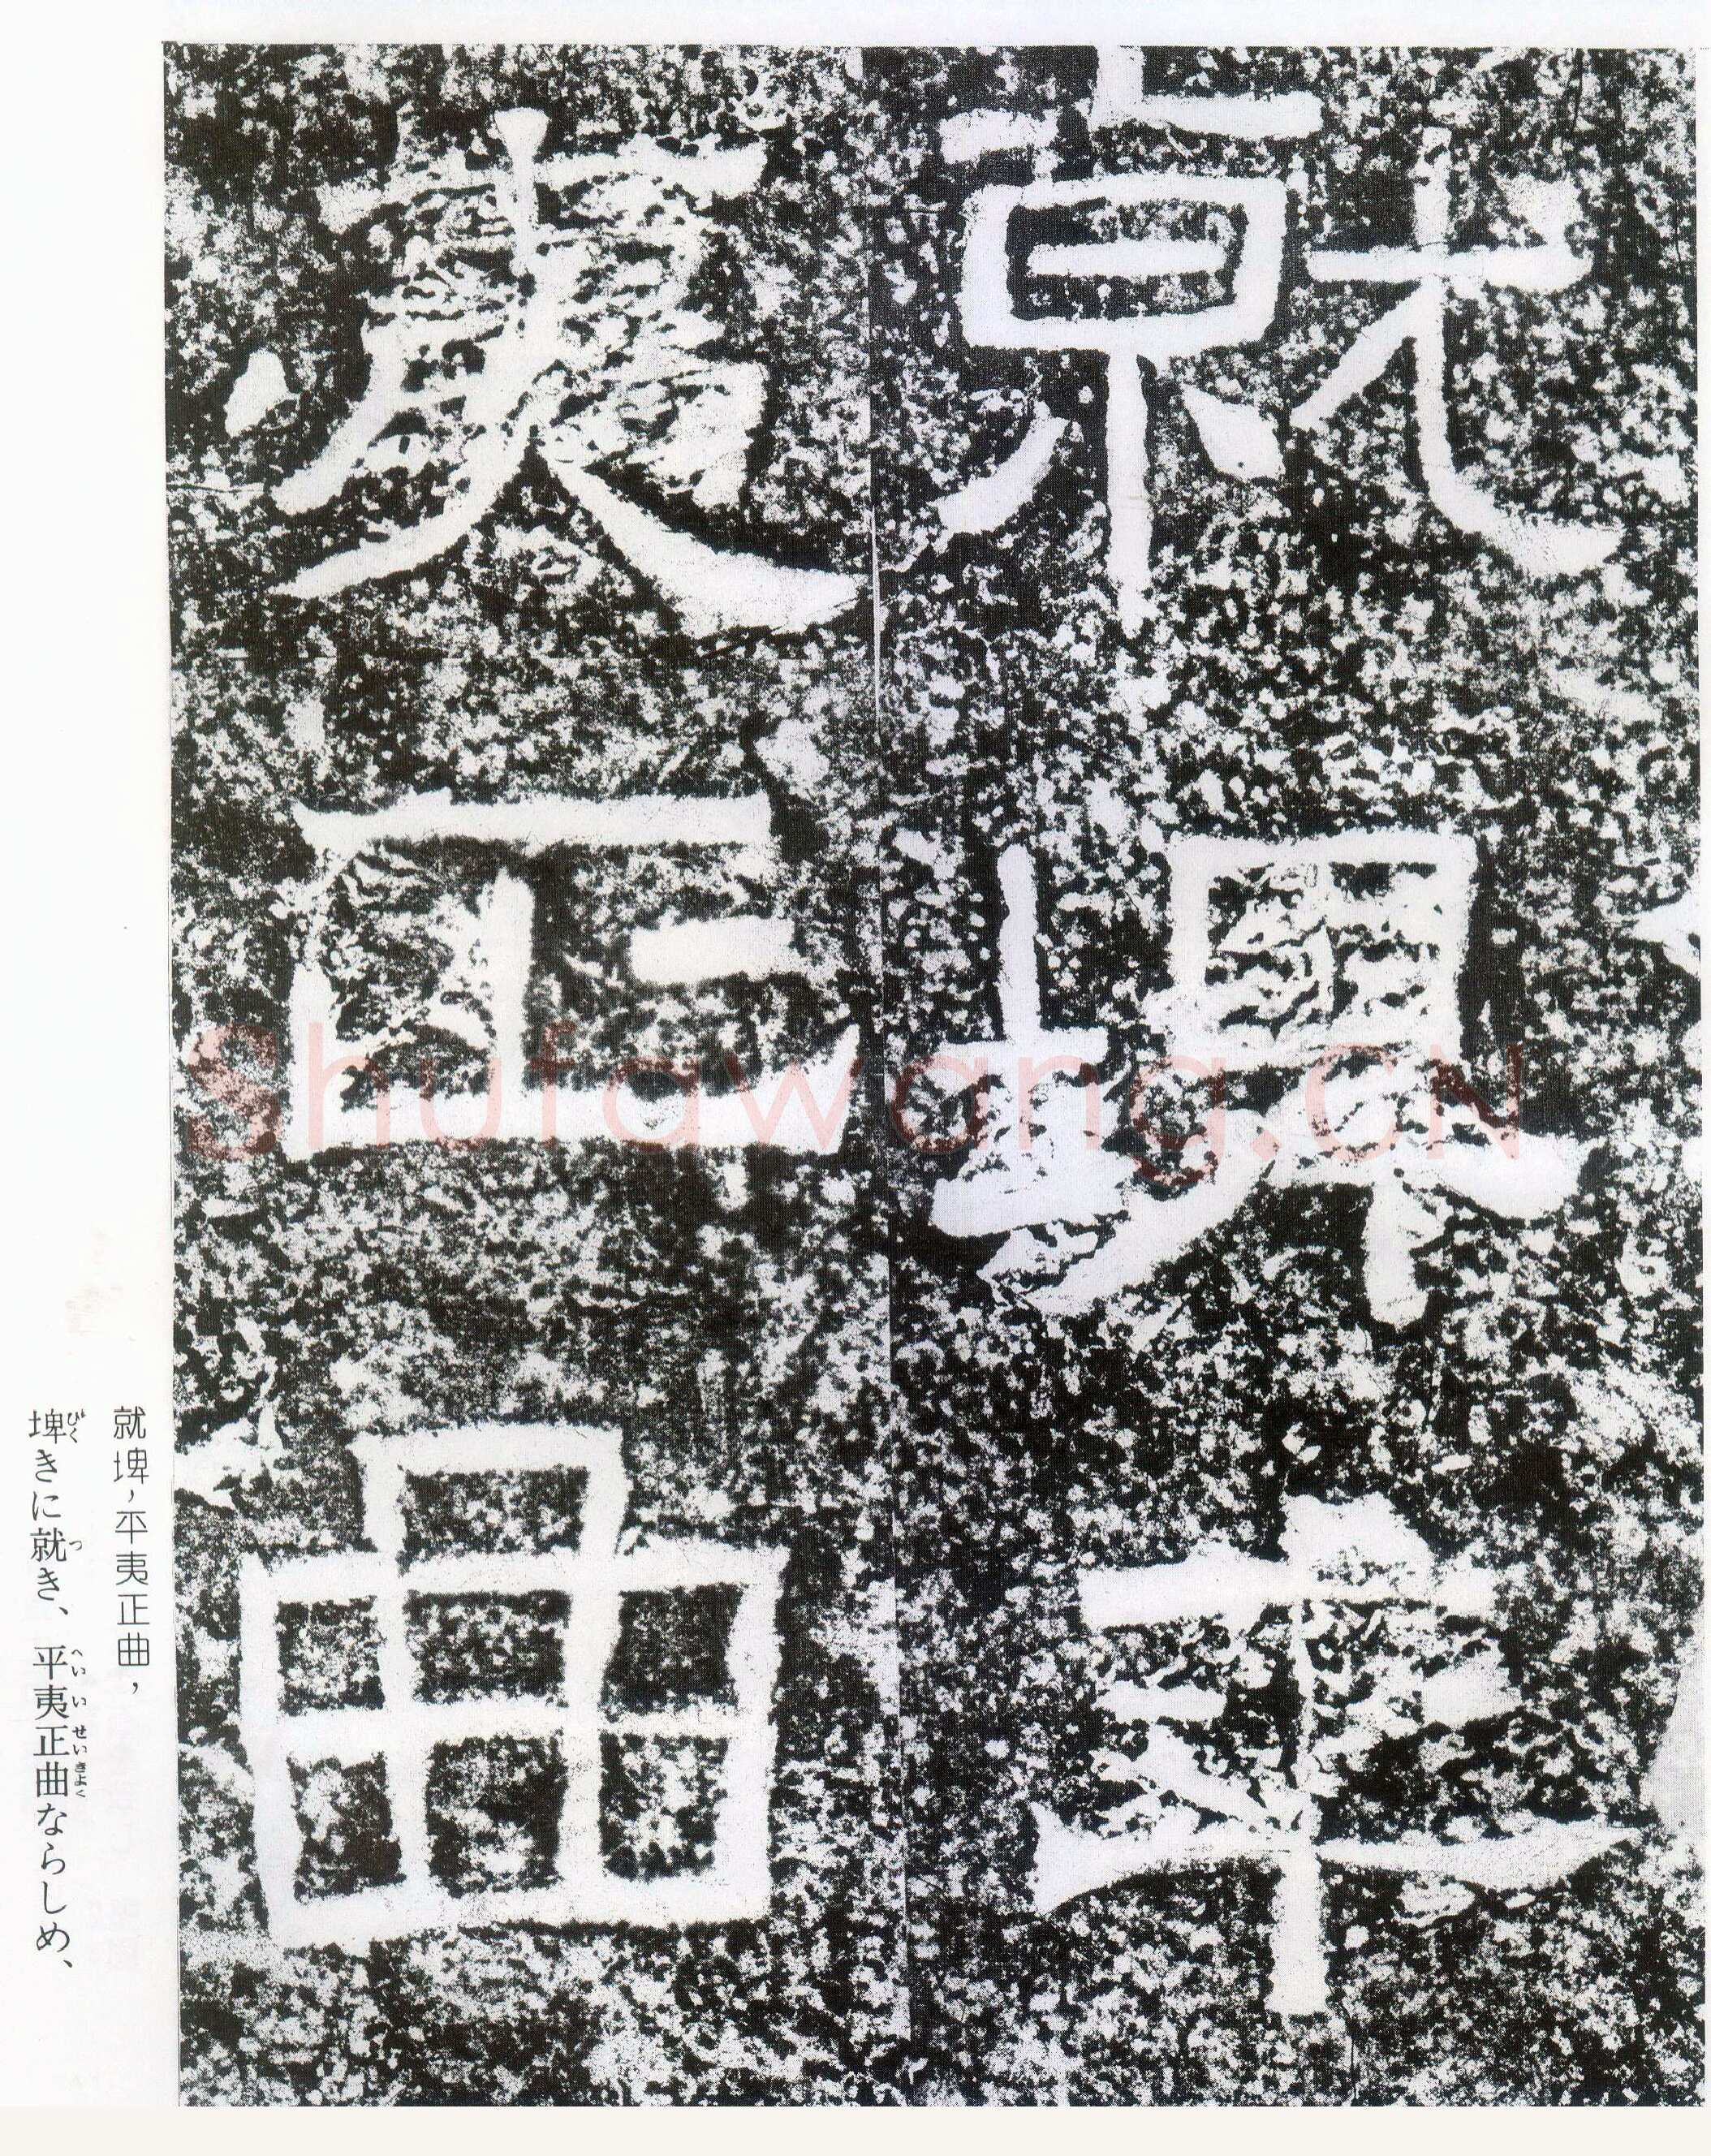 就埤平
夷正曲
就埤，平夷正曲，
埤きに就き、平夷正曲ならしめ、
Shufawang.CN